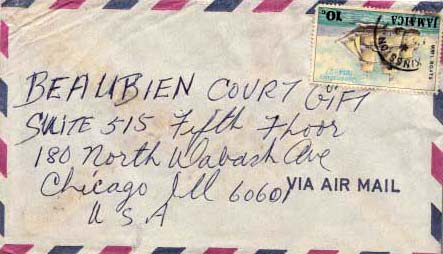 JAMAICA
10c
MAIL BOATS
KINGSTON
BEAUBIEN COURT GIFT
SUITE 515 Fifth Floor
180 North Wabash Ave
Chicago Ill 60601
VIA AIR MAIL
U.S.A